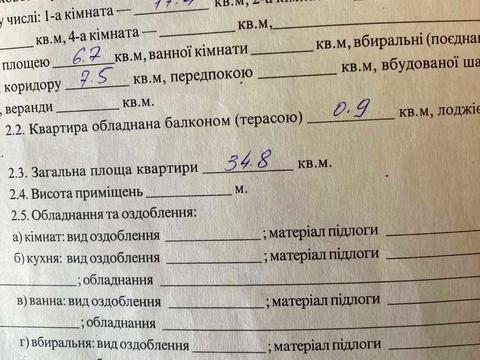 у числі: 1-а кімната — 17.4 кв.м, 2-а кімна
кв.м, 4-а кімната — кв.м,
площею 6.7 кв.м, ванної кімнати кв.м, вбиральні (поєдна
коридору 7.5 кв.м, передпокою кв.м, вбудованої ша
, веранди кв.м.
2.2. Квартира обладнана балконом (терасою) 0.9 кв.м, лоджіє
2.3. Загальна площа квартири 34.8 кв.м.
2.4. Висота приміщень м.
2.5. Обладнання та оздоблення:
а) кімнат: вид оздоблення ; матеріал підлоги
б) кухня: вид оздоблення ; матеріал підлоги
; обладнання
в) ванна: вид оздоблення ; матеріал підлоги
; обладнання
г) вбиральня: вид оздоблення ; матеріал підлоги